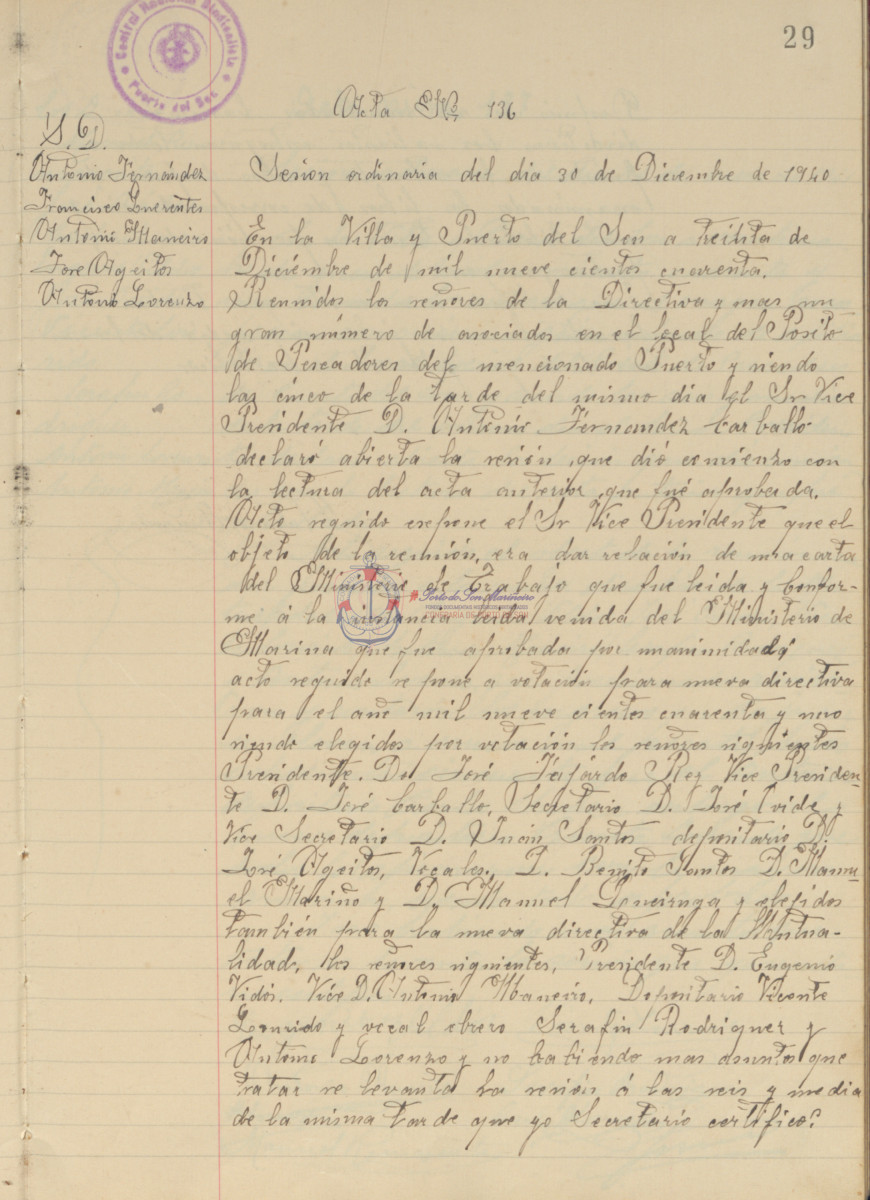 Central Nacional Sindicalista
Puerto del Son
29
Acta Nº 136
S. D.
Antonio Fernández
Francisco Lorentes
Antonio Maneiro
José Ageitos
Antonio Lorenzo
Sesion ordinaria del dia 30 de Diciembre de 1940
En la Villa y Puerto del Son a treinta de
Diciémbre de mil nueve cientos cuarenta.
Reunidos los señores de la Directiva y mas un
gran número de asociados en el local del Posito
de Pescadores del mencionado Puerto y siendo
las cinco de la tarde del mismo dia el Sr Vice
Presidente D. Antonio Fernandez Carballo
declaró abierta la sesión, que dió comienzo con
la lectura del acta anterior, que fué aprobada.
Acto seguido expone el Sr Vice Presidente que el
objeto de la reunión, era dar relación de una carta
del Ministerio de Trabajo que fue leida y confor-
me á la leida venida del Ministerio de
Marina que fue aprobada por unanimidad y
acto seguido se pone a votación para nueva directiva
para el año mil nueve cientos cuarenta y uno
siendo elegidos por votación los señores siguientes
Presidente. Dn José Fajárdo Rey Vice Presiden-
te D. José Carballo, Secretario D. José Vide y
Vice Secretario D. Juan Santos depositario D.
José Ageitos, Vocales, D. Benito Santos D. Manu-
el Mariño y D. Manuel y elejidos
también para la nueva directiva de la Mutua-
lidad, los señores siguientes, Presidente D. Eugenio
Vidós. Vice D. Antonio Maneiro, Depositario Vicente
Lourido y vocal obrero Serafin Rodriguez y
Antonio Lorenzo y no habiendo mas asuntos que
tratar se levanta la sesión á las seis y media
de la misma tarde que yo Secretario certifico.
Porto do Son Mariñeiro
CONFRARÍA DE PORTO DO SON